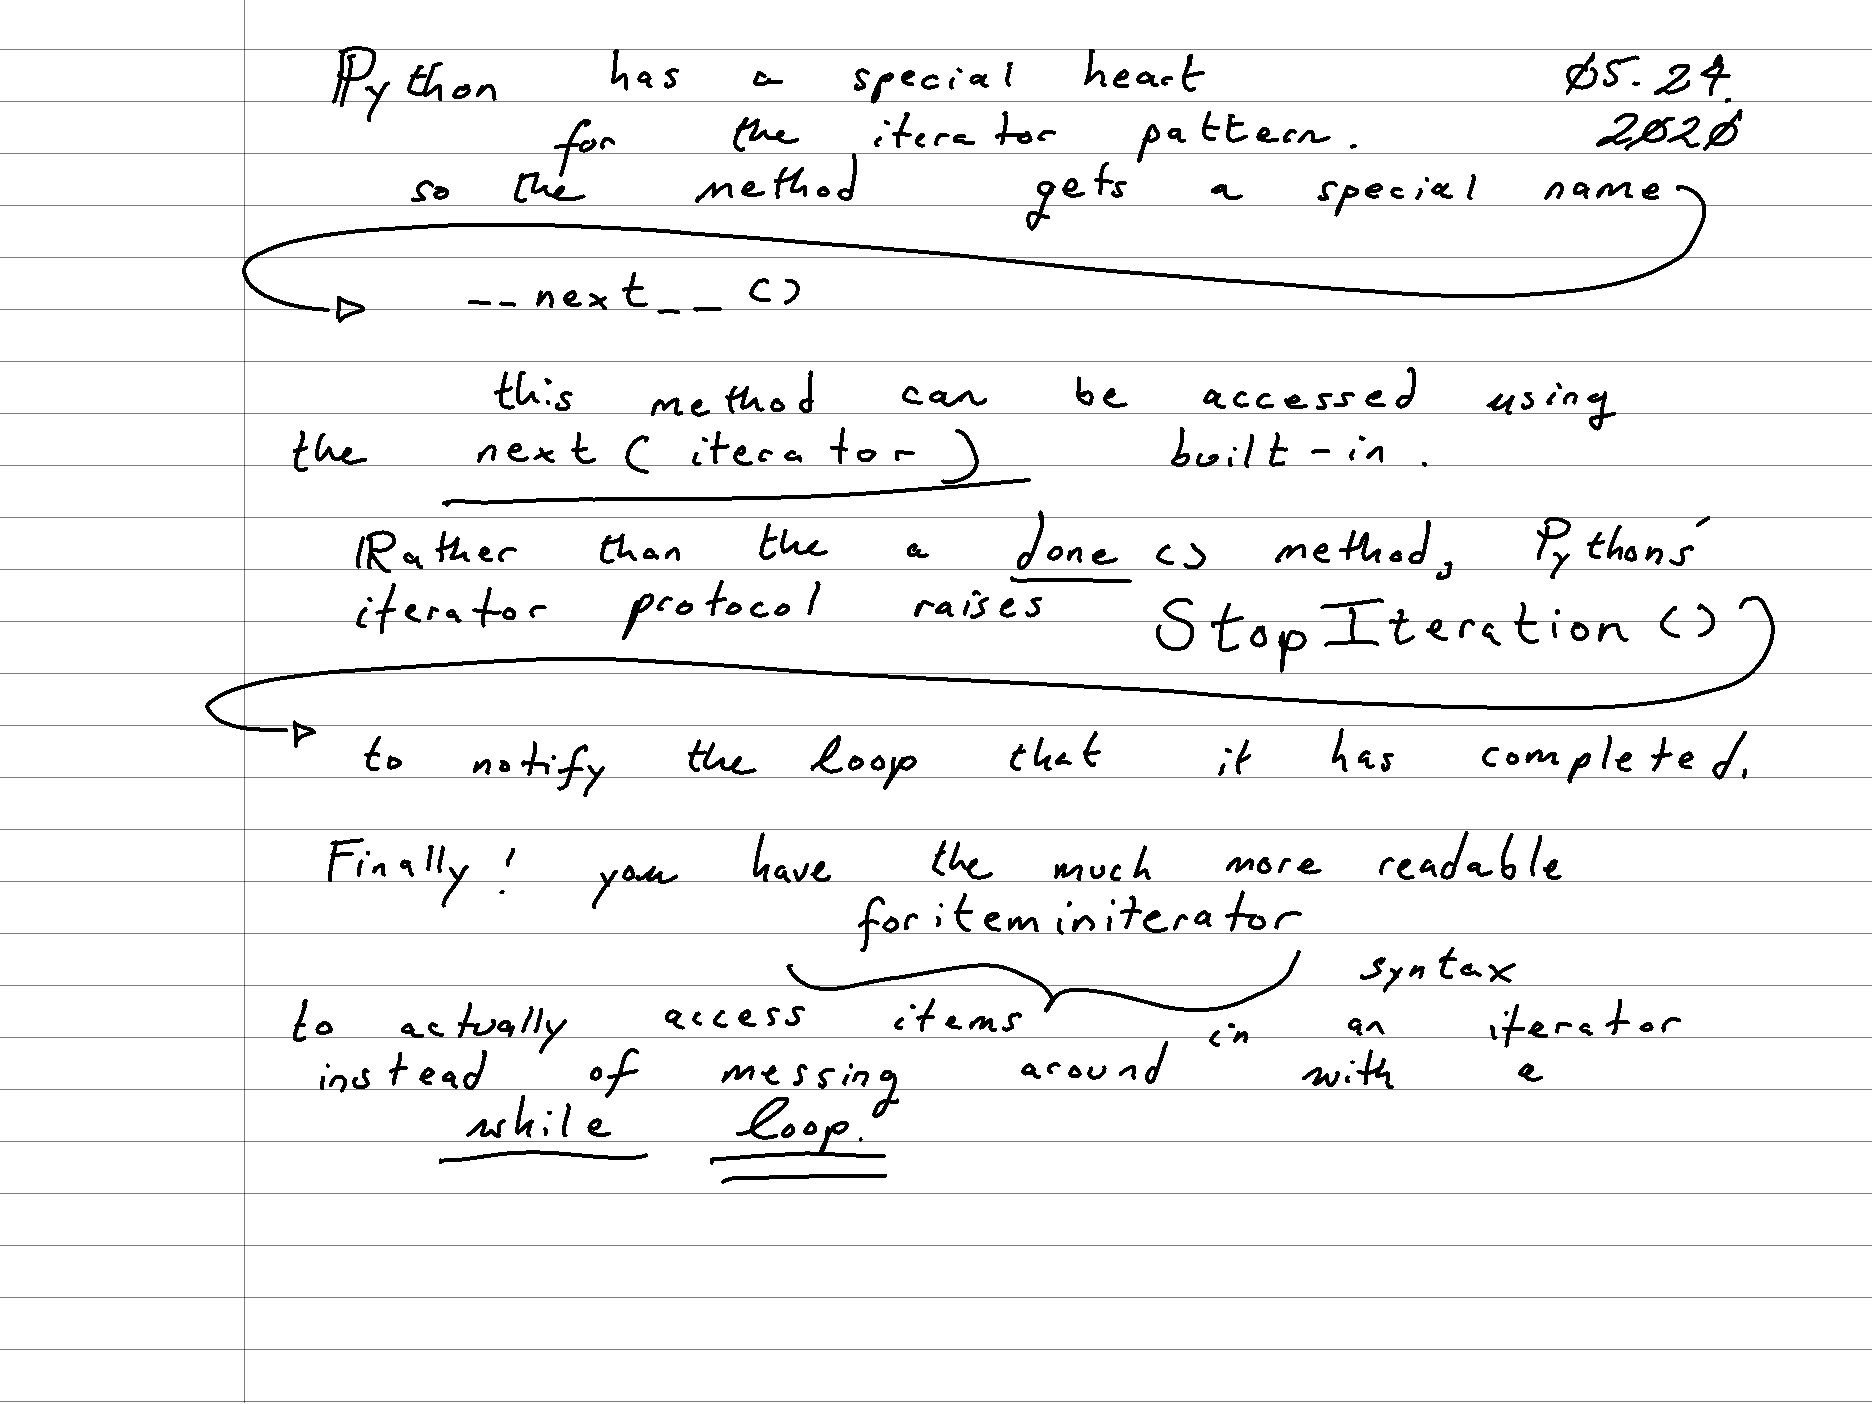 Python has a special heart 05.24.
for the iterator pattern. 2020
so the method gets a special name
__next__ ()
this method can be accessed using
the next ( iterator ) built-in .
Rather than the a done () method, Pythons'
iterator protocol raises StopIteration ()
to notify the loop that it has completed.
Finally! you have the much more readable
foriteminiterator
syntax
to actually access items in an iterator
instead of messing around with a
while loop.